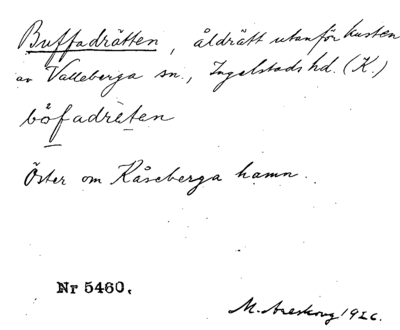 Buffadrätten, åldrätt utanför kusten
av Valleberga sn., Ingelstads hd. (K.)
bòfadrèten
Öster om Kåseberga hamn.
Nr 5460.
M. Areskoug 1926.